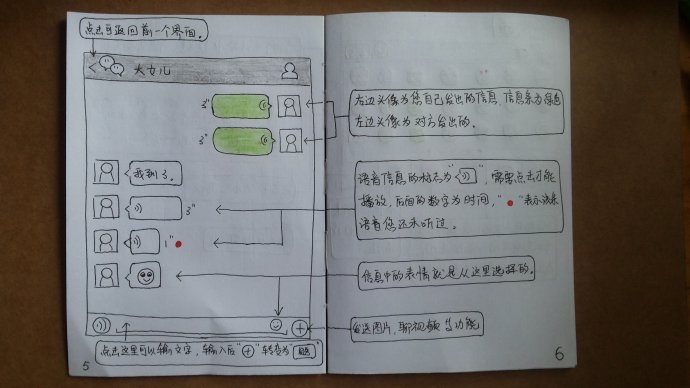 点击可返回前一个界面。
大女儿
3"
3"
我到了。
3"
1"
右边头像为您自己发出的信息,信息条为绿色
左边头像为对方发出的。
语音信息的标志为" ",需要点击才能
播放,后面的数字为时间,"●"表示这条
语音您还未听过。
信息中的表情就是从这里选择的。
发送图片,聊视频等功能
点击这里可以输文字,输入后"+"转变为"发送"
5
6